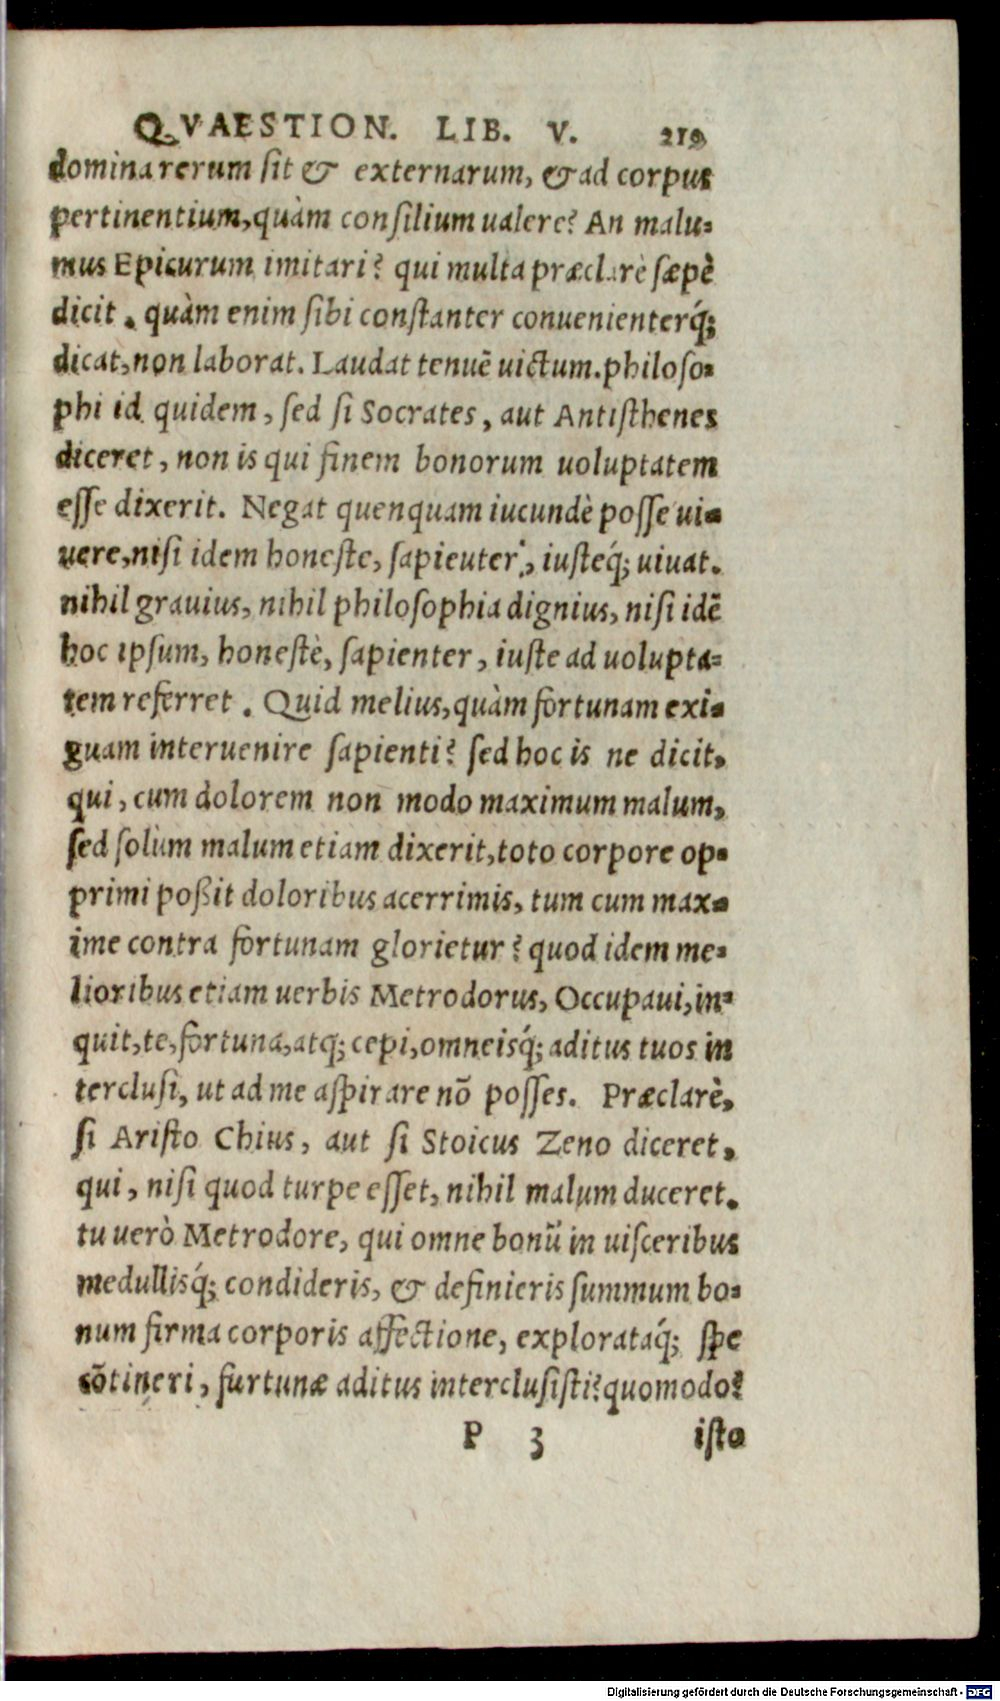 QVAESTION. LIB. V. 219
domina rerum ſit & externarum, & ad corpus
pertinentium, quàm conſilium ualere? An malu-
mus Epicurum imitari? qui multa præclarè ſæpè
dicit. quàm enim ſibi conſtanter conuenienterq́;
dicat, non laborat. Laudat tenuē uictum. philoſo-
phi id quidem, ſed ſi Socrates, aut Antiſthenes
diceret, non is qui finem bonorum uoluptatem
eſſe dixerit. Negat quenquam iucundè poſſe ui-
uere, niſi idem honeſte, ſapieuter, iuſteq́; uiuat.
nihil grauius, nihil philoſophia dignius, niſi idē
hoc ipſum, honeſtè, ſapienter, iuſte ad uolupta-
tem referret. Quid melius, quàm fortunam exi-
guam interuenire ſapienti? ſed hoc is ne dicit,
qui, cum dolorem non modo maximum malum,
ſed ſolùm malum etiam dixerit, toto corpore op-
primi poßit doloribus acerrimis, tum cum max-
ime contra fortunam glorietur? quod idem me-
lioribus etiam uerbis Metrodorus, Occupaui, in-
quit, te, fortuna, atq; cepi, omneisq́; aditus tuos in
terclusi, ut ad me aſpirare nō poſſes. Præclarè,
ſi Ariſto Chius, aut ſi Stoicus Zeno diceret,
qui, niſi quod turpe eſſet, nihil malum duceret.
tu uerò Metrodore, qui omne bonū in uiſceribus
medullisq́; condideris, & definieris ſummum bo-
num firma corporis affectione, explorataq́; ſpe
cōtineri, furtunæ aditus interclusiſti? quomodo?
P 3 iſto
Digitalisierung gefördert durch die Deutsche Forschungsgemeinschaft - DFG